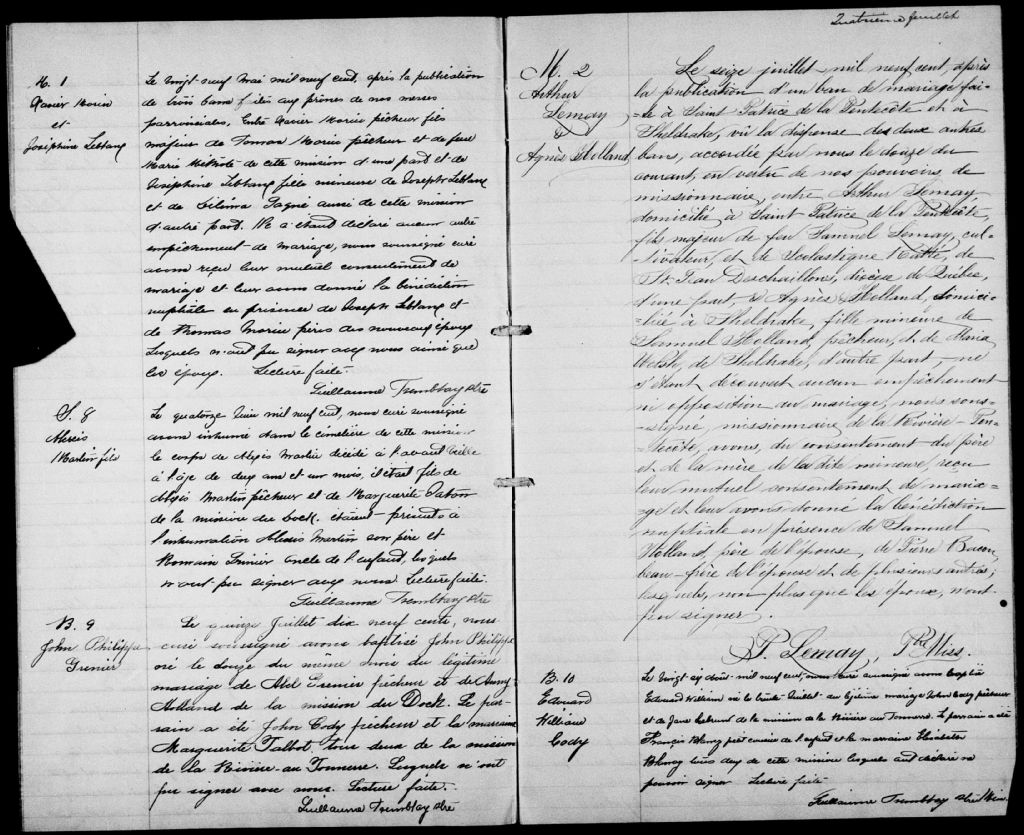 M. 1
Xavier Morin
et
Joséphine Leblanc
Le vingt-neuf Mai mil neuf cent, après la publication
de trois bans faites aux prônes de nos messes
paroissiales, Entre Xavier Morin pêcheur fils
majeur de Thomas Morin pêcheur et de feue
Marie de cette mission d'une part et de
Joséphine Leblanc fille mineure de Joseph Leblanc
et de Célina Gagné aussi de cette mission
d'autre part. Ne s'étant déclaré aucun autre
empêchement de mariage, nous soussigné curé
avons reçu leur mutuel consentement de
mariage et leur avons donné la bénédiction
nuptiale en présence de Joseph Leblanc et
de Thomas Morin pères des nouveaux époux
Lesquels n'ont pu signer avec nous ainsi que
les époux. Lecture faite
Guillaume Tremblay Ptre
S. 8
Alexis
Martin fils
Le quatorze Juin mil neuf cent, nous curé soussigné
avons inhumé dans le cimetière de cette mission
le corps de Alexis Martin décédé à l'avant veille
à l'âge de deux ans et un mois, il était fils de
Alexis Martin pêcheur et de Marguerite
de la mission du Dock. étaient présents à
l'inhumation Alexis Martin son père et
Romain oncle de l'enfant, lesquels
n'ont pu signer avec nous Lecture faite.
Guillaume Tremblay Ptre
B. 9
John Philippe
Grenier
Le quinze Juillet dix neuf cents, nous
curé soussigné avons baptisé John Philippe
né le douze du même mois du légitime
mariage de Abel Grenier pêcheur et de Anny
Holland de la mission du Dock. Le par-
rain a été John Cody pêcheur et la marraine
Marguerite Talbot, tous deux de la mission
de la Rivière-au-Tonnerre. Lesquels n'ont
pu signer avec nous. Lecture faite.
Guillaume Tremblay Ptre
Quatrième feuillet
M. 2
Arthur
Lemay
&
Agnès Holland
Le seize juillet mil neuf cent, après
la publication d'un ban de mariage fai-
=te à Saint Patrice de la Pentecôte et à
Sheldrake, vu la dispense des deux autres
bans, accordée par nous le douze du
courant, en vertu de nos pouvoirs de
missionnaire, entre Arthur Lemay
domicilié à Saint-Patrice de la Pentecôte,
fils majeur de feu Samuel Lemay, cul-
tivateur, et de Scolastique de
St. Jean Deschaillons, diocèse de Québec,
d'une part, & Agnès Holland, domici-
=liée à Sheldrake, fille mineure de
Samuel Holland, pêcheur, et de Maria
Welsh, de Sheldrake, d'autre part — ne
s'étant découvert aucun empêchement
ni opposition au mariage, nous sous-
=signé, missionnaire de la Rivière-Pen-
tecôte, avons, du consentement du père
et de la mère de la dite mineure, reçu
leur mutuel consentement de maria-
=ge et leur avons donné la bénédiction
nuptiale en présence de Samuel
Holland, père de l'épouse, de Pierre Bacon,
beau-frère de l'épouse et de plusieurs autres;
lesquels, non plus que les époux, n'ont
pu signer.
P. Lemay, Ptre Miss.
B. 10
Edouard
William
Cody
Le vingt août mil neuf cent, nous curé soussigné avons baptisé
Edouard William né le trente Juillet du légitime mariage John Cody pêcheur
et de Jane de la mission de la Rivière au Tonnerre. Le parrain a été
Francis cousin de l'enfant et la marraine Elisabeth
tous deux de cette mission lesquels ont déclaré ne
pouvoir signer. Lecture faite
Guillaume Tremblay Ptre Miss.